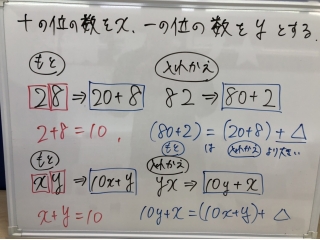 十の位の数をx、一の位の数をyとする。
もと 入れかえ
28⇒20+8 82⇒80+2
2+8=10, (80+2)=(20+8)+△
もと は 入れかえ より大きい
もと 入れかえ
xy⇒10x+y yx⇒10y+x
x+y=10 10y+x=(10x+y)+△